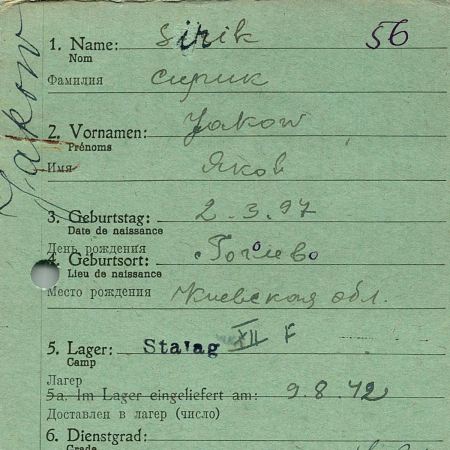 1. Name: Sirik 56
Nom
Фамилия Сирик
Jakow
2. Vornamen: Jakow
Prénoms
Имя Яков
3. Geburtstag: 2.3.97
Date de naissance
День рождения
4. Geburtsort: Гоголево
Lieu de naissance
Место рождения Киевская обл.
5. Lager: Stalag XII F
Camp
Лагер
5a. Im Lager eingeliefert am: 9.8.42
Доставлен в лагер (число)
6. Dienstgrad:
Grade